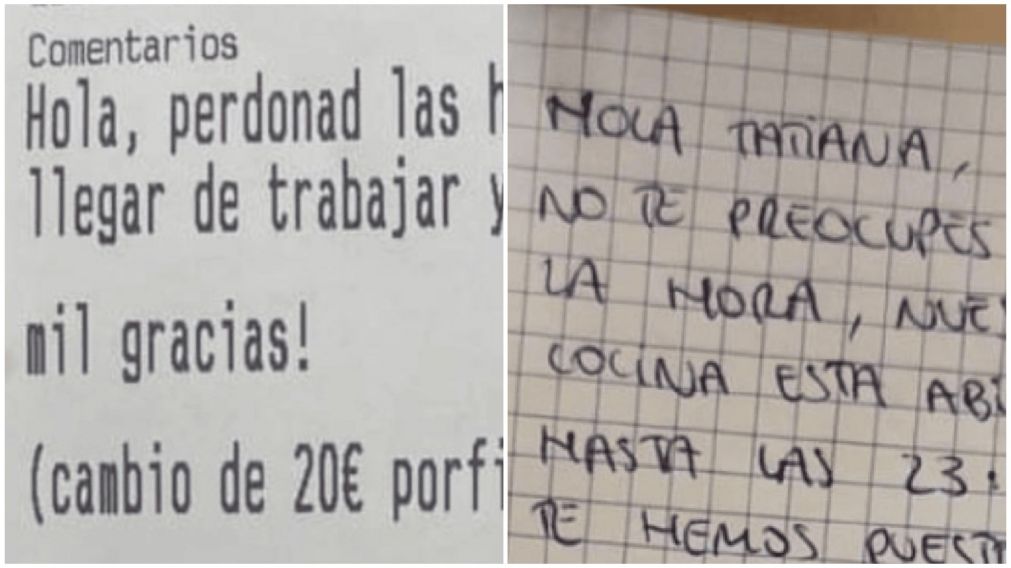 Comentarios
Hola, perdonad las
llegar de trabajar y
mil gracias!
(cambio de 20€ porfi
HOLA TATIANA,
NO TE PREOCUPES
LA HORA, NUE
COCINA ESTA ABI
HASTA LAS 23:
TE HEMOS PUEST